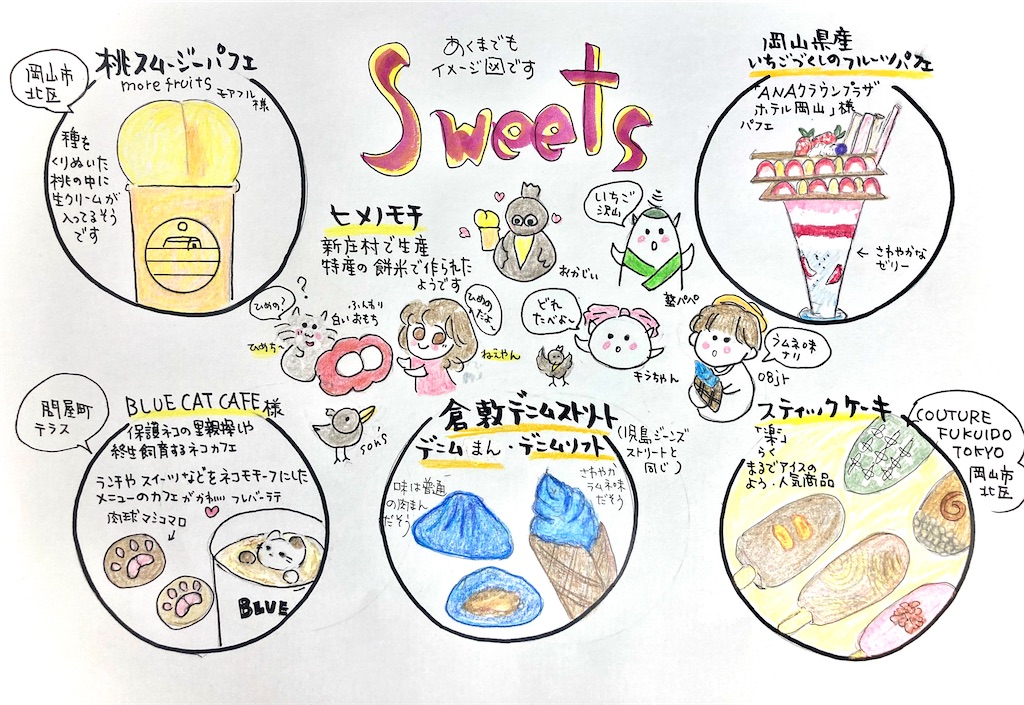 あくまでも
イメージ図です
Sweets
岡山市
北区
桃スムージーパフェ
more fruits モアフル様
種を
くりぬいた
桃の中に
生クリームが
入ってるそう
です
岡山県産
いちごづくしのフルーツパフェ
「ANAクラウンプラザ
ホテル岡山」様
パフェ
←さわやかな
ゼリー
ヒメノモチ
新庄村で生産
特産の餅米で作られた
ようです
おかじい
いちご
沢山
整パパ
ひめの?
?
ひめち
ふんわり
白いおもち
ひめの
だよ〜
ねえやん
どれ
たべよ〜
そうちゃん
ラムネ味
ナリ
OBjr
son's
問屋町
テラス
BLUE CAT CAFE 様
保護ネコの里親探しや
終生飼育するネコカフェ
ランチやスイーツなどをネコモチーフにした
メニューのカフェがかわいい ラレバーラテ
肉球マシュマロ
BLUE
倉敷デニムストリート
デニムまん・デニムソフト
(児島ジーンズ
ストリートと
同じ)
味は普通
の肉まん
だそう
さわやか
ラムネ味
だそう
スティックケーキ
「楽」
らく
まるでアイスの
よう・人気商品
COUTURE
FUKUIDO
TOKYO
岡山市
北区